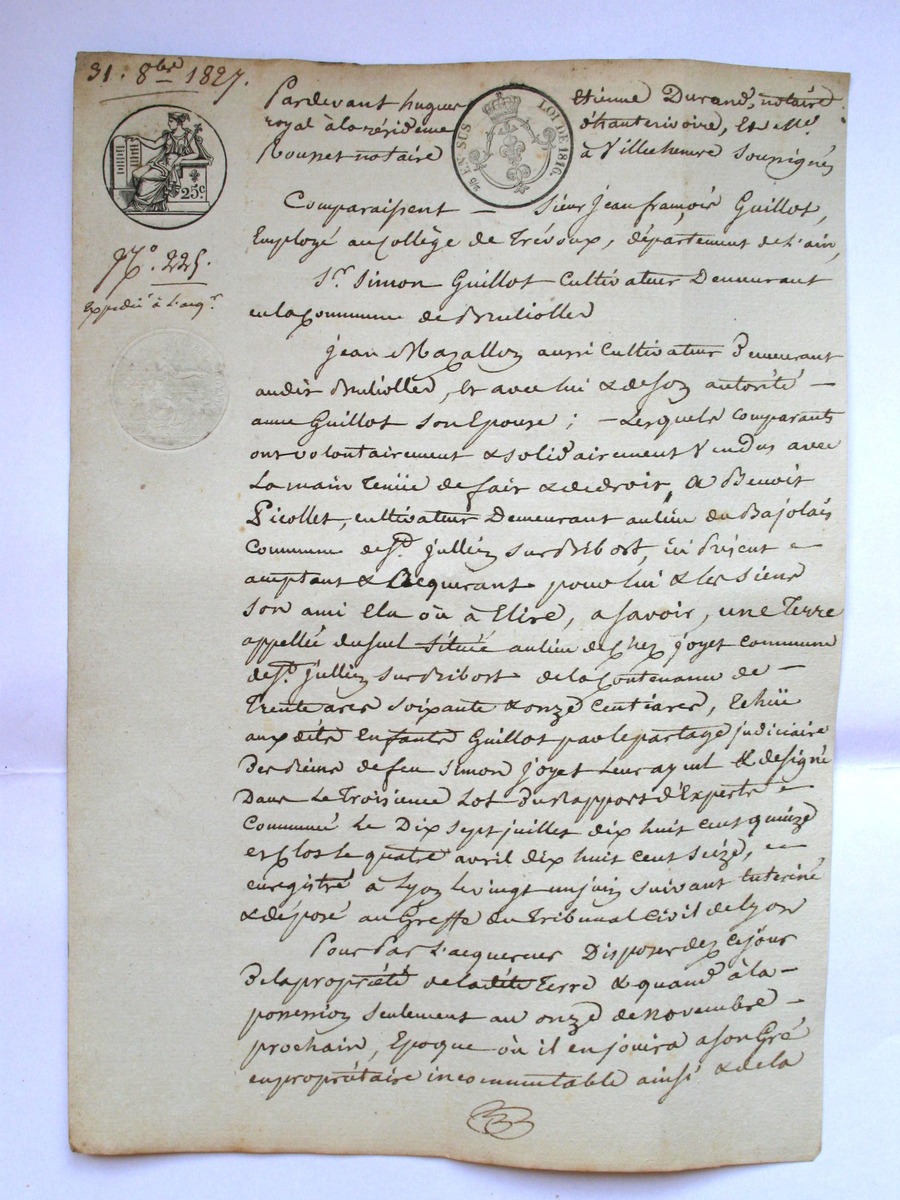 31. 8bre 1827.
Pardevant hugues Etienne Durand, notaire
royal à la résidence d'hauterivoire, Et Me.
Rousset notaire à Villechenève soussignés
25 EN SUS LOI DE 1816.
25c
No. 225.
Expedié à l'acqr.
Comparaissent — Sieur Jean françois Guillot,
Employé au Collège de Trévoux, département de l'ain,
Sr. Simon Guillot Cultivateur Demeurant
en la Commune de Brulliolles
Jean Mazallon aussi Cultivateur Demeurant
audit Brulliolles, et avec lui & de son autorité —
anne Guillot son Epouse ; — Lesquels comparants
ont volontairement & solidairement Vendus avec
La main tenüe de fait & de droit, A Benoit
Picollet, cultivateur Demeurant au lieu du Bajolais
Commune de St. jullien sur Bibost, ici Présent —
acceptant & Acquerant pour lui & les siens
son ami Elu ou à Elire, a savoir, une Terre
appellée du suel Située au lieu de Chez joyet commune
de St. jullien sur Bibost de la Contenance de —
Trente ares soixante & onze Centiares, Echüe
aux dits Enfants Guillot par le partage judiciaire
Des Biens de feu Simon joyet Leur ayeul & designé
Dans Le Troisième Lot Du Rapport d'Experts —
Commencé Le Dix sept juillet dix huit cent quinze
et Clos le quatre avril dix huit cent seize, —
enregistré à Lyon le vingt un juin suivant Enteriné
& déposé au Greffe du Tribunal Civil de Lyon
Pour Par L'acquereur Disposer dez ce jour
De la propriété de la dite Terre & quand à la —
possession seulement au onze de novembre —
prochain, Epoque où il en jouira a son Gré
en propriétaire incommutable ainsi & de la